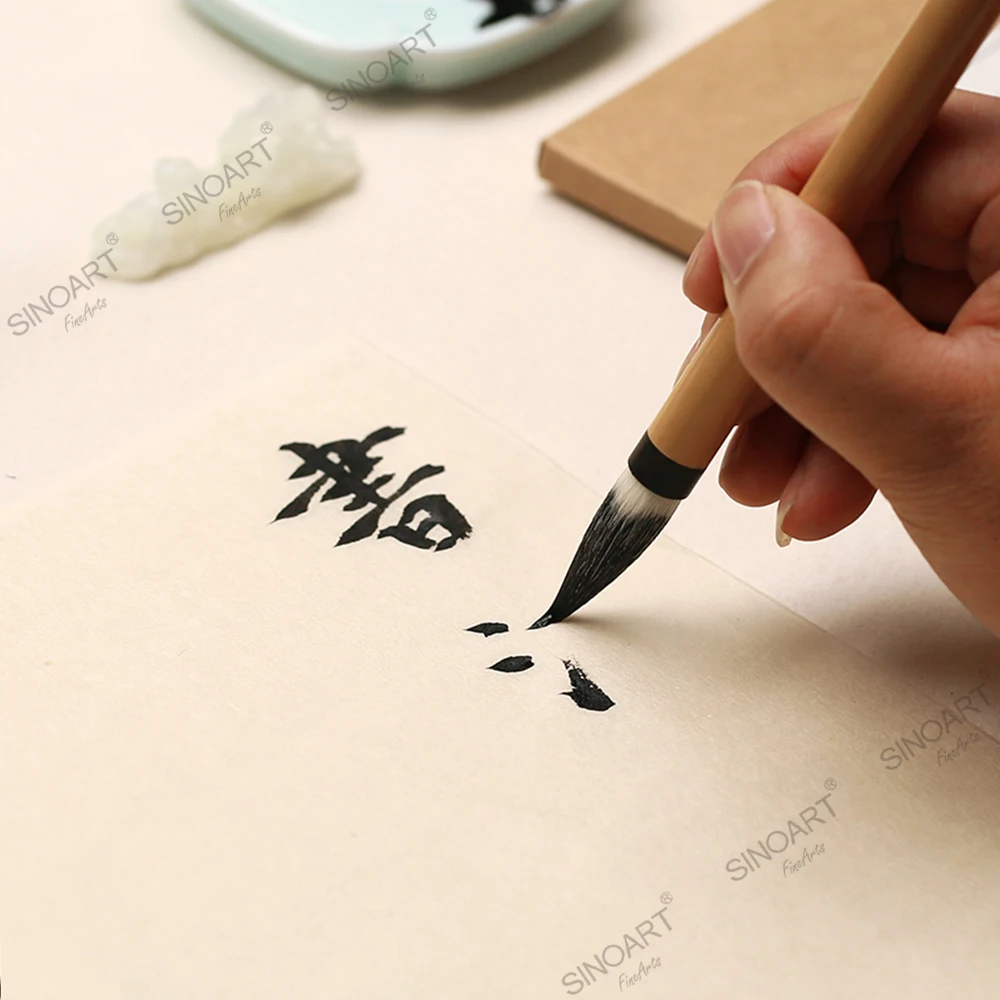 SINOART®
SINOART®
FineArts
SINOART®
FineArts
書
SINOART
FineArts
SINOART®
FineArts
SINOART®
FineArts